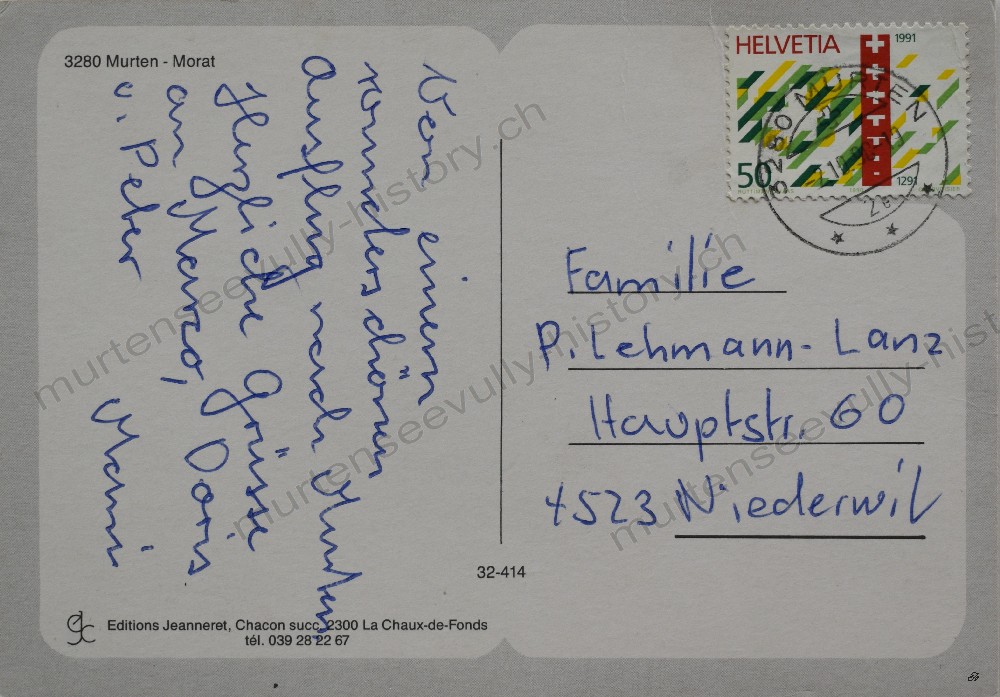 3280 Murten - Morat
Von einem
wunderschönen
Ausflug nach Murten
Herzliche Grüsse
an Marco, Doris
u. Peter
Mami
HELVETIA
1991
50
1291
3280 MURTEN
Familie
P. Lehmann-Lanz
Hauptstr. 60
4523 Niederwil
32-414
Editions Jeanneret, Chacon succ. 2300 La Chaux-de-Fonds
tél. 039 28 22 67
murtenseevully-history.ch
murtenseevully-history.ch
murtenseevully-history.ch